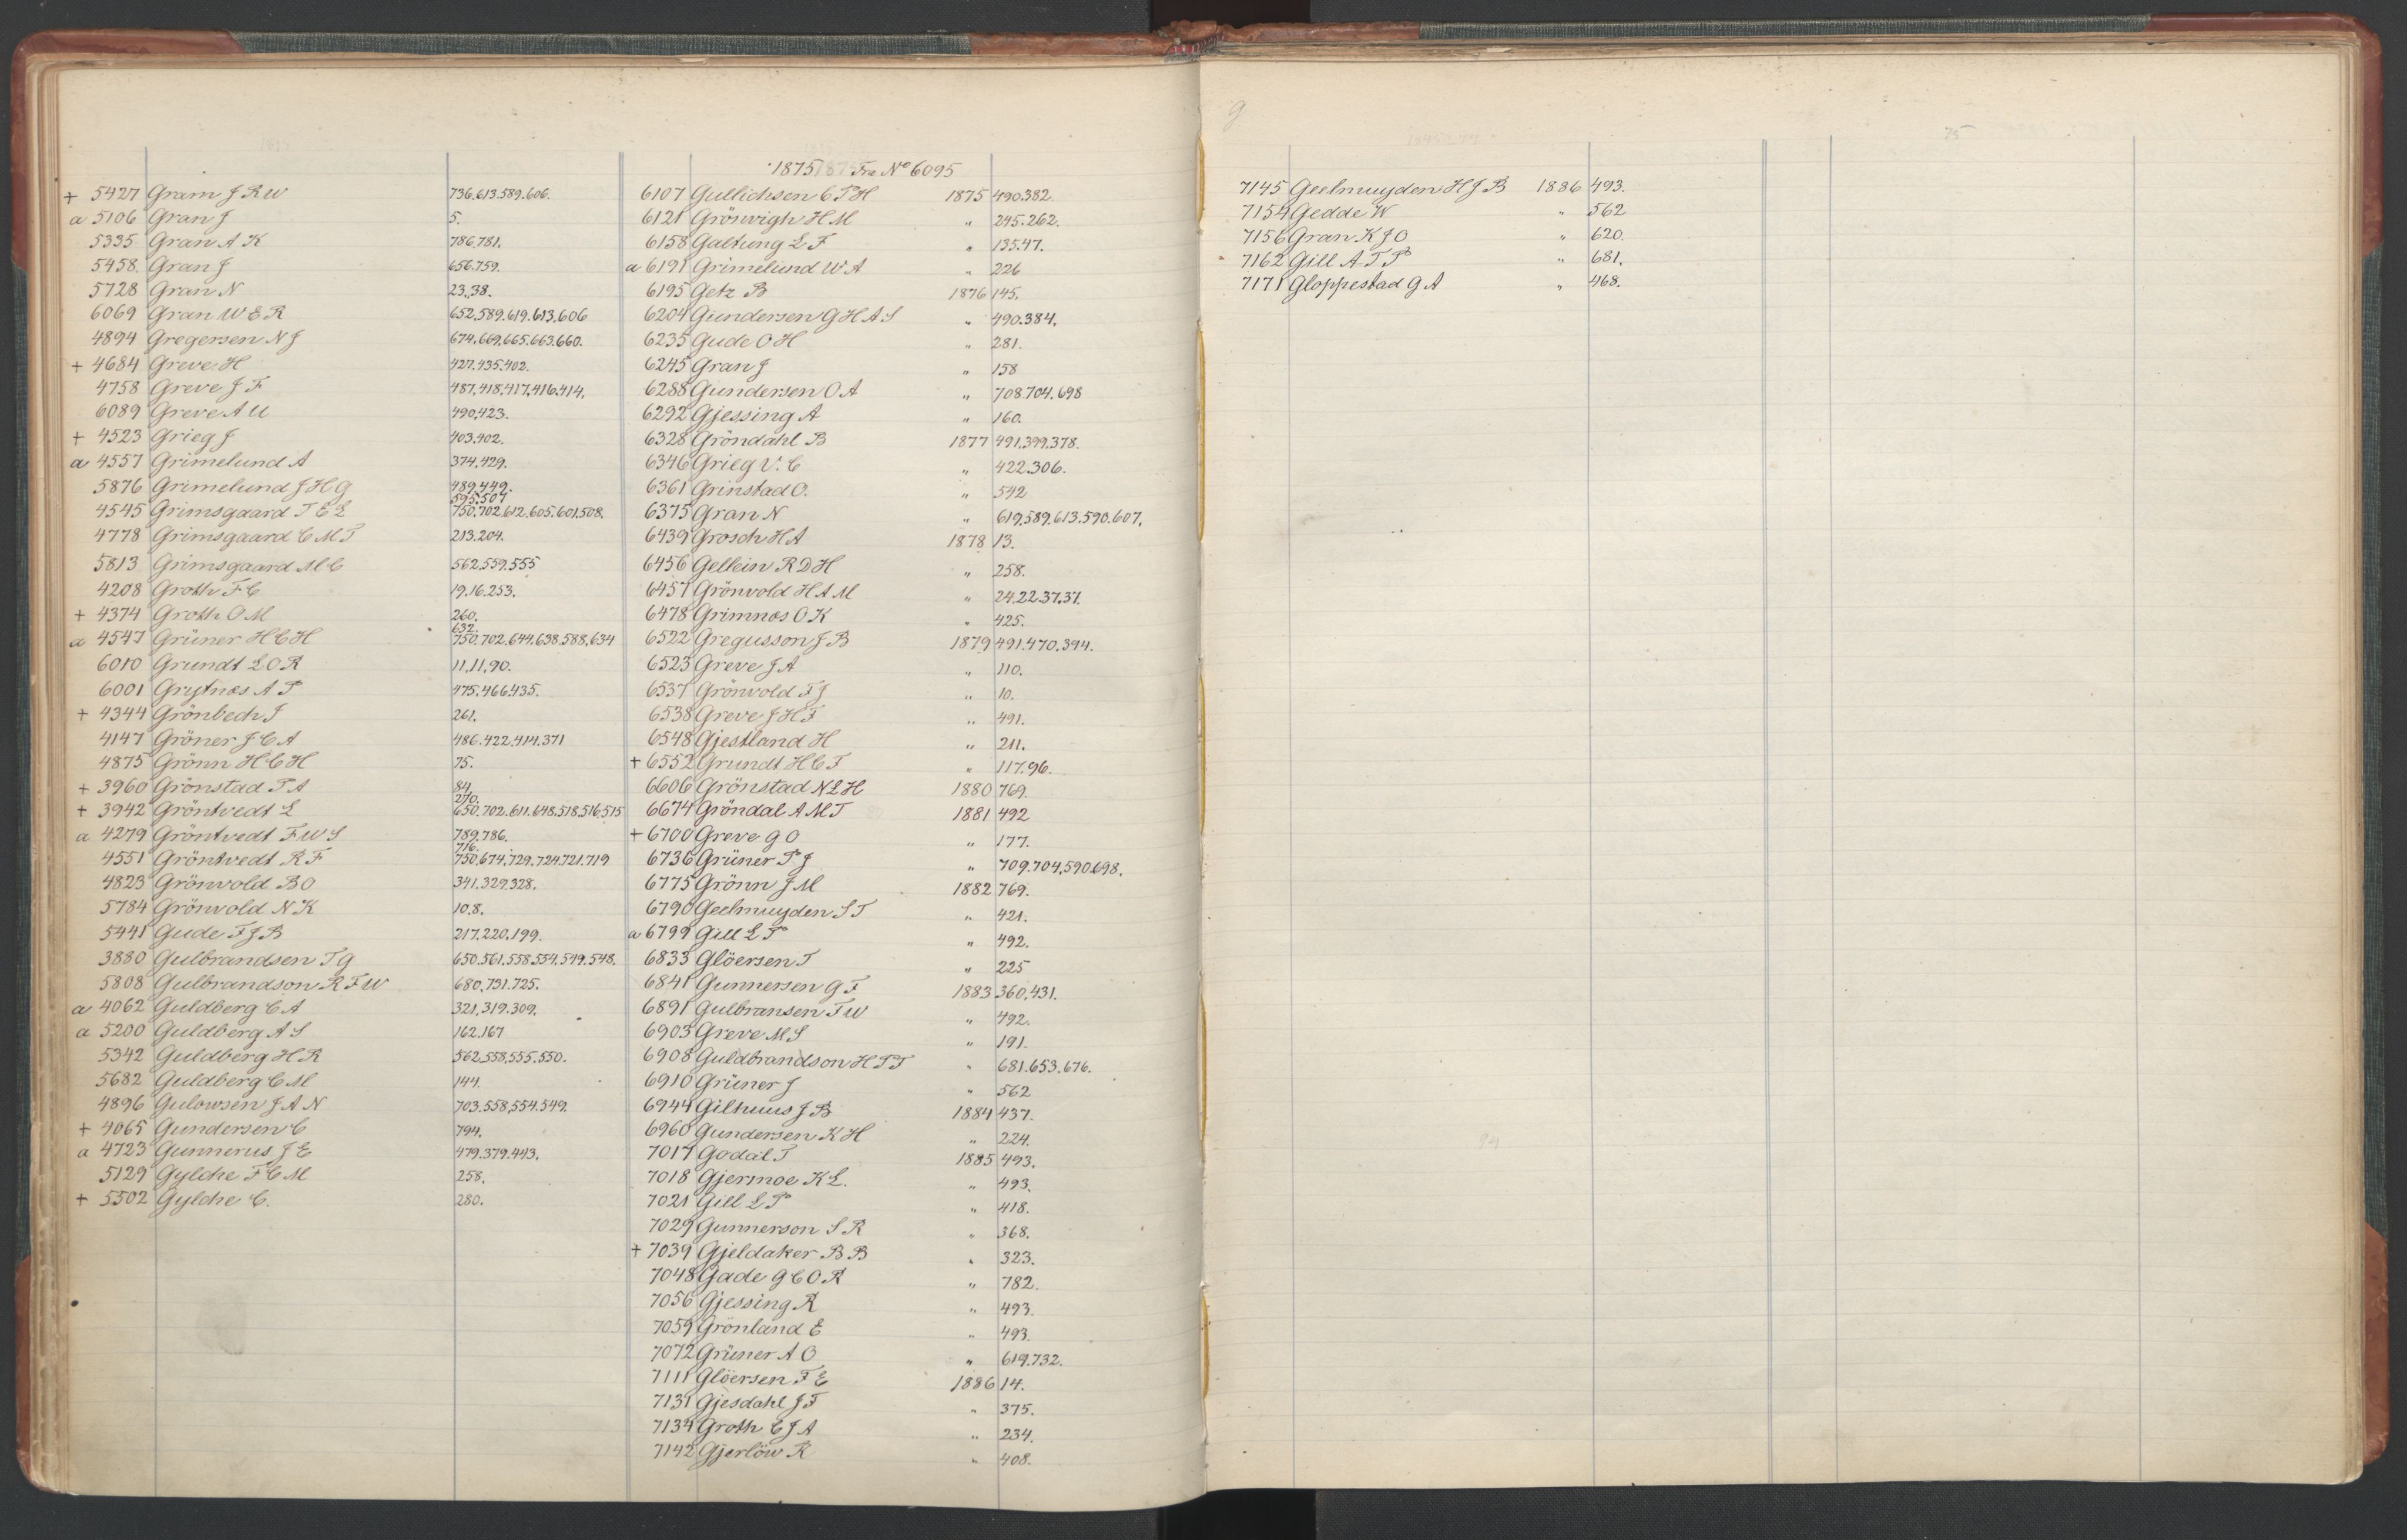 + 5427 Gram J R W 736.613.589.606.
a 5106 Gran J 5.
5335 Gran A K 786,781.
5458 Gran J 656.759.
5728 Gran N 23,38.
6069 Gran W E R 652,589.619.613.606
4894 Gregersen N J 674.669.665.663.660.
+ 4684 Greve H 427.435.402.
4758 Greve J F 487,418,417,416,414,
6089 Greve A U 490,423.
+ 4523 Grieg J 403,402.
a 4557 Grimelund A 374,429.
5876 Grimelund J H G 489,449.
595.507
4545 Grimsgaard T E L 750,702.612.605.601,508.
4778 Grimsgaard C M T 213.204.
5813 Grimsgaard M C 562,559.555
4208 Groth F C 19.16.253.
+ 4374 Groth O M 260.
632.
a 4547 Grüner H C H 750.702.644.638.588,634
6010 Grundt L O R 11,11,90.
6001 Grytnæs A P 475.466.435.
+ 4344 Grönbech J 261.
4147 Gröner J C A 486.422.414.371
4875 Grönn H C H 75.
+ 3960 Grönstad P A 84.
270.
+ 3942 Gröntvedt L 650.702.611.648.518.516,515
a 4279 Gröntvedt F W S 789,786.
716.
4551 Gröntvedt R F 750,674,729,724.721.719
4823 Grönvold B O 341.329.328.
5784 Grönvold N K 10.8.
5441 Gude F J B 217.220,199.
3880 Gulbrandsen T G 650.561.558.554.549.548.
5808 Gulbrandson R F W 680,731.725.
a 4062 Guldberg C A 321,319.309.
a 5200 Guldberg A S 162.167
5342 Guldberg H R 562,558,555.550.
5682 Guldberg C M 144.
4896 Gulowsen J A N 703.558,554.549.
+ 4065 Gundersen C 794.
a 4723 Gunnerus J E 479.379.443.
5129 Gylche F C M 258.
+ 5502 Gylche C. 280.
1875 Fra No 6095
6107 Gullichsen C P H 1875 490.382.
6121 Grönvigh H M " 245.262.
6158 Galtung L F " 135.47.
a 6191 Grimelund W A " 226
6195 Getz B 1876 145.
6204 Gundersen G H A S " 490.384.
6235 Gude O H " 281.
6245 Gran J " 158
6288 Gundersen O A " 708.704.698
6292 Gjessing A " 160.
6328 Gröndahl B 1877 491.399.378.
6346 Grieg V. C " 422.306.
6361 Grinstad O. " 542
6375 Gran N " 619,589.613.590.607,
6439 Grosch H A 1878 13.
6456 Gellein R D H " 258.
6457 Grönvold H A M " 24.22.37.37.
6478 Grimnæs O K " 425.
6522 Gregusson J B 1879 491.470.394.
6523 Greve J A " 110.
6537 Grönvold F J " 10.
6538 Greve J H F " 491.
6548 Gjestland H " 211.
+ 6552 Grundt H C F " 117.96.
6606 Grönstad N L H 1880 769.
6674 Gröndal A M T 1881 492
+ 6700 Greve G O " 177.
6736 Grüner P J " 709.704,590.698.
6775 Grönn J M 1882 769.
6790 Geelmuyden S T " 421.
a 6799 Gill L P " 492.
6833 Glöersen T " 225
6841 Gunnersen G F 1883 360,431.
6891 Gulbransen F W " 492.
6903 Greve M S " 191.
6908 Guldbrandson H P T " 681.653.676.
6910 Grüner J " 562
6944 Gilhuus J B 1884 437.
6960 Gundersen K H " 224.
7017 Godal T 1885 493.
7018 Gjermoe K L. " 493.
7021 Gill L P " 418.
7029 Gunnerson S R " 368.
+ 7039 Gjeldaker B B " 323.
7048 Gade G C O R " 782.
7056 Gjessing R " 493.
7059 Grönland E " 493.
7072 Grüner A O " 619.732.
7111 Glöersen F E 1886 14.
7131 Gjesdahl J F " 375.
7134 Groth C J A " 234.
7142 Gjerlöw R " 408.
g
7145 Geelmuyden H J B 1886 493.
7154 Gedde W " 562
7156 Gran K J O " 620.
7162 Gill A T P " 681.
7171 Gloppestad G A " 468.
75
94